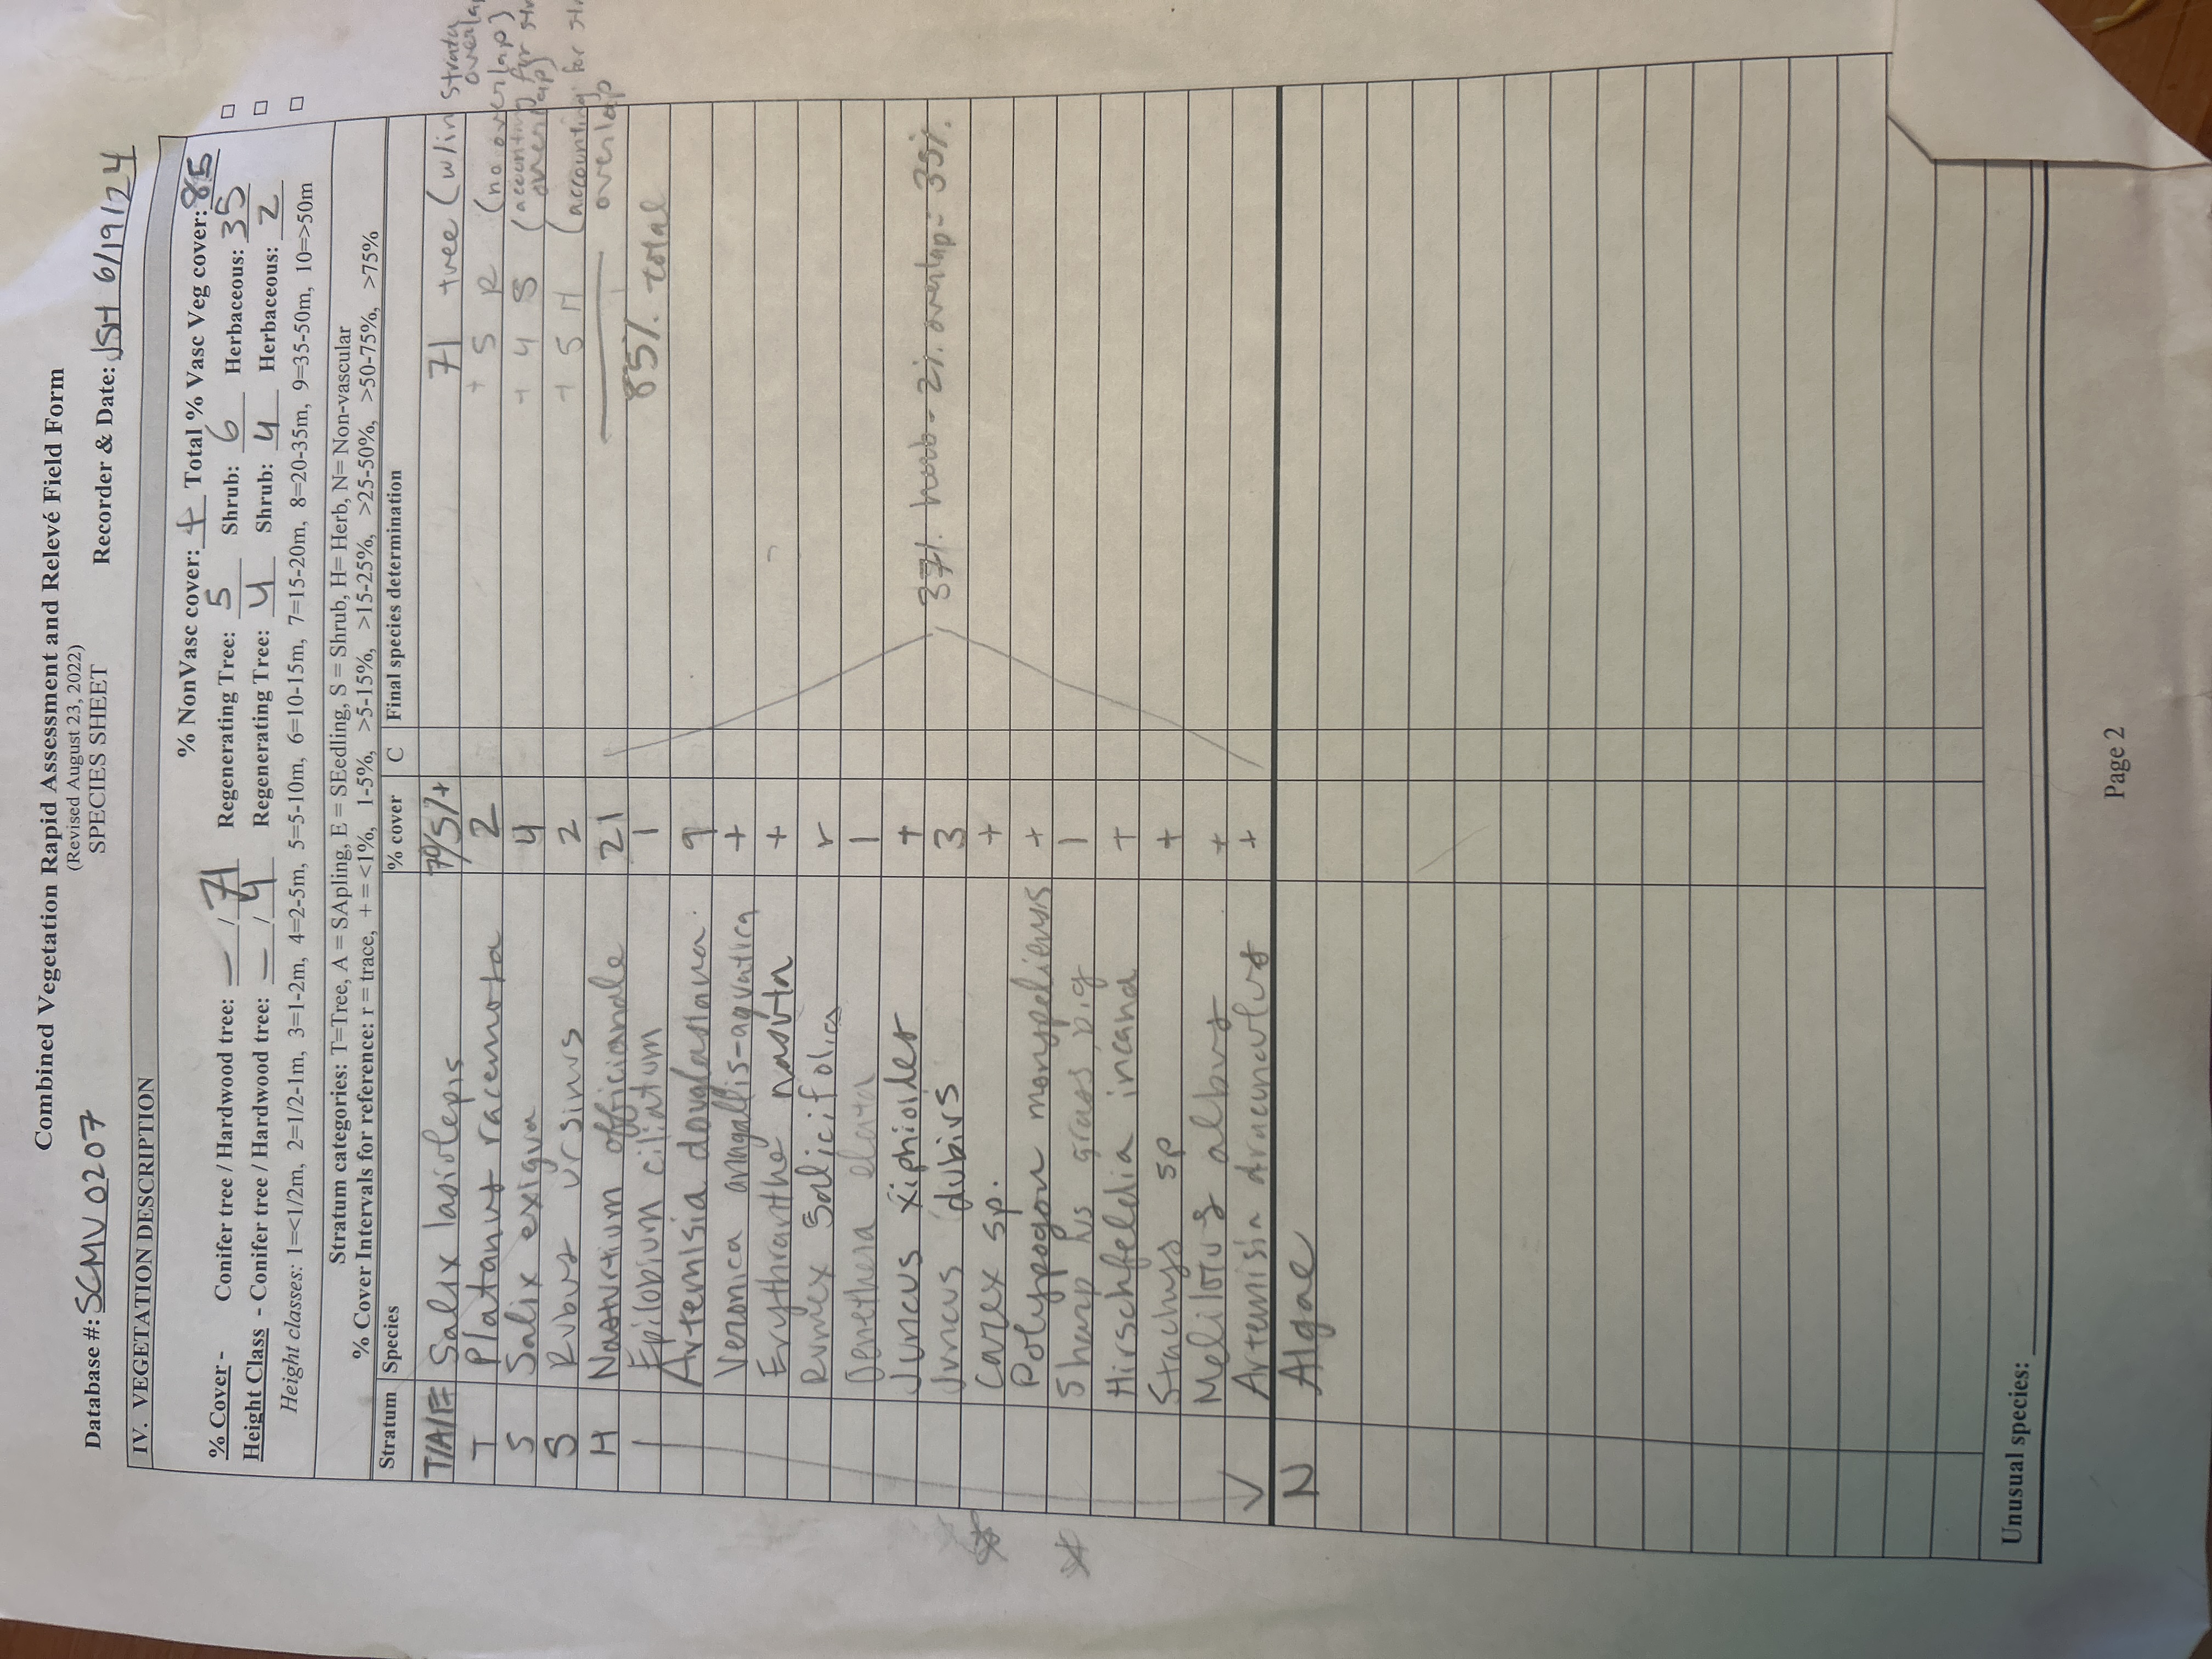 Combined Vegetation Rapid Assessment and Relevé Field Form
(Revised August 23, 2022)
SPECIES SHEET
Database #: SCMV0207 Recorder & Date: JSH 6/19/24
IV. VEGETATION DESCRIPTION
% NonVasc cover: + Total % Vasc Veg cover: 85
% Cover - Conifer tree / Hardwood tree: — / 71 Regenerating Tree: 5 Shrub: 6 Herbaceous: 35 □
Height Class - Conifer tree / Hardwood tree: — / 4 Regenerating Tree: 4 Shrub: 4 Herbaceous: 2 □
Height classes: 1=<1/2m, 2=1/2-1m, 3=1-2m, 4=2-5m, 5=5-10m, 6=10-15m, 7=15-20m, 8=20-35m, 9=35-50m, 10=>50m □
Stratum categories: T=Tree, A = SApling, E = SEedling, S = Shrub, H= Herb, N= Non-vascular
% Cover Intervals for reference: r = trace, + = <1%, 1-5%, >5-15%, >15-25%, >25-50%, >50-75%, >75%
Stratum Species % cover C Final species determination
T/A/E Salix lasiolepis 70/5/+ 71 tree (w/in strata overlap)
T Platanus racemosa 2 + 5 R (no overlap)
S Salix exigua 4 + 4 S (accounting for overlap)
S Rubus ursinus 2 + 5 H (accounting for overlap
H Nasturtium officianale 21
Epilobium ciliatum 1 85% total
Artemisia douglasiana 9
Veronica anagallis-aquatica +
Erythranthe nasuta +
Rumex salicifolius r
Oenethera elata 1
Juncus xiphioides +
Juncus dubius 3 37% herb - 2% overlap = 35%
Carex sp. +
Polypogon monspeliensis +
Sharp lvs grass p.ig 1
Hirschfeldia incana +
Stachys sp +
Melilotus albus +
Artemisia dracunculus +
N Algae
Unusual species:
Page 2